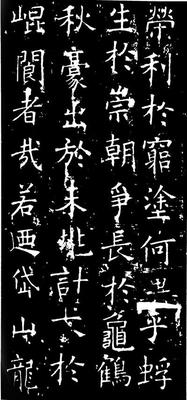 榮利於窮塗何異乎蜉
生於崇朝爭長於龜鶴
秋豪出於未兆計大於
崐閬者哉若迺岱山龍